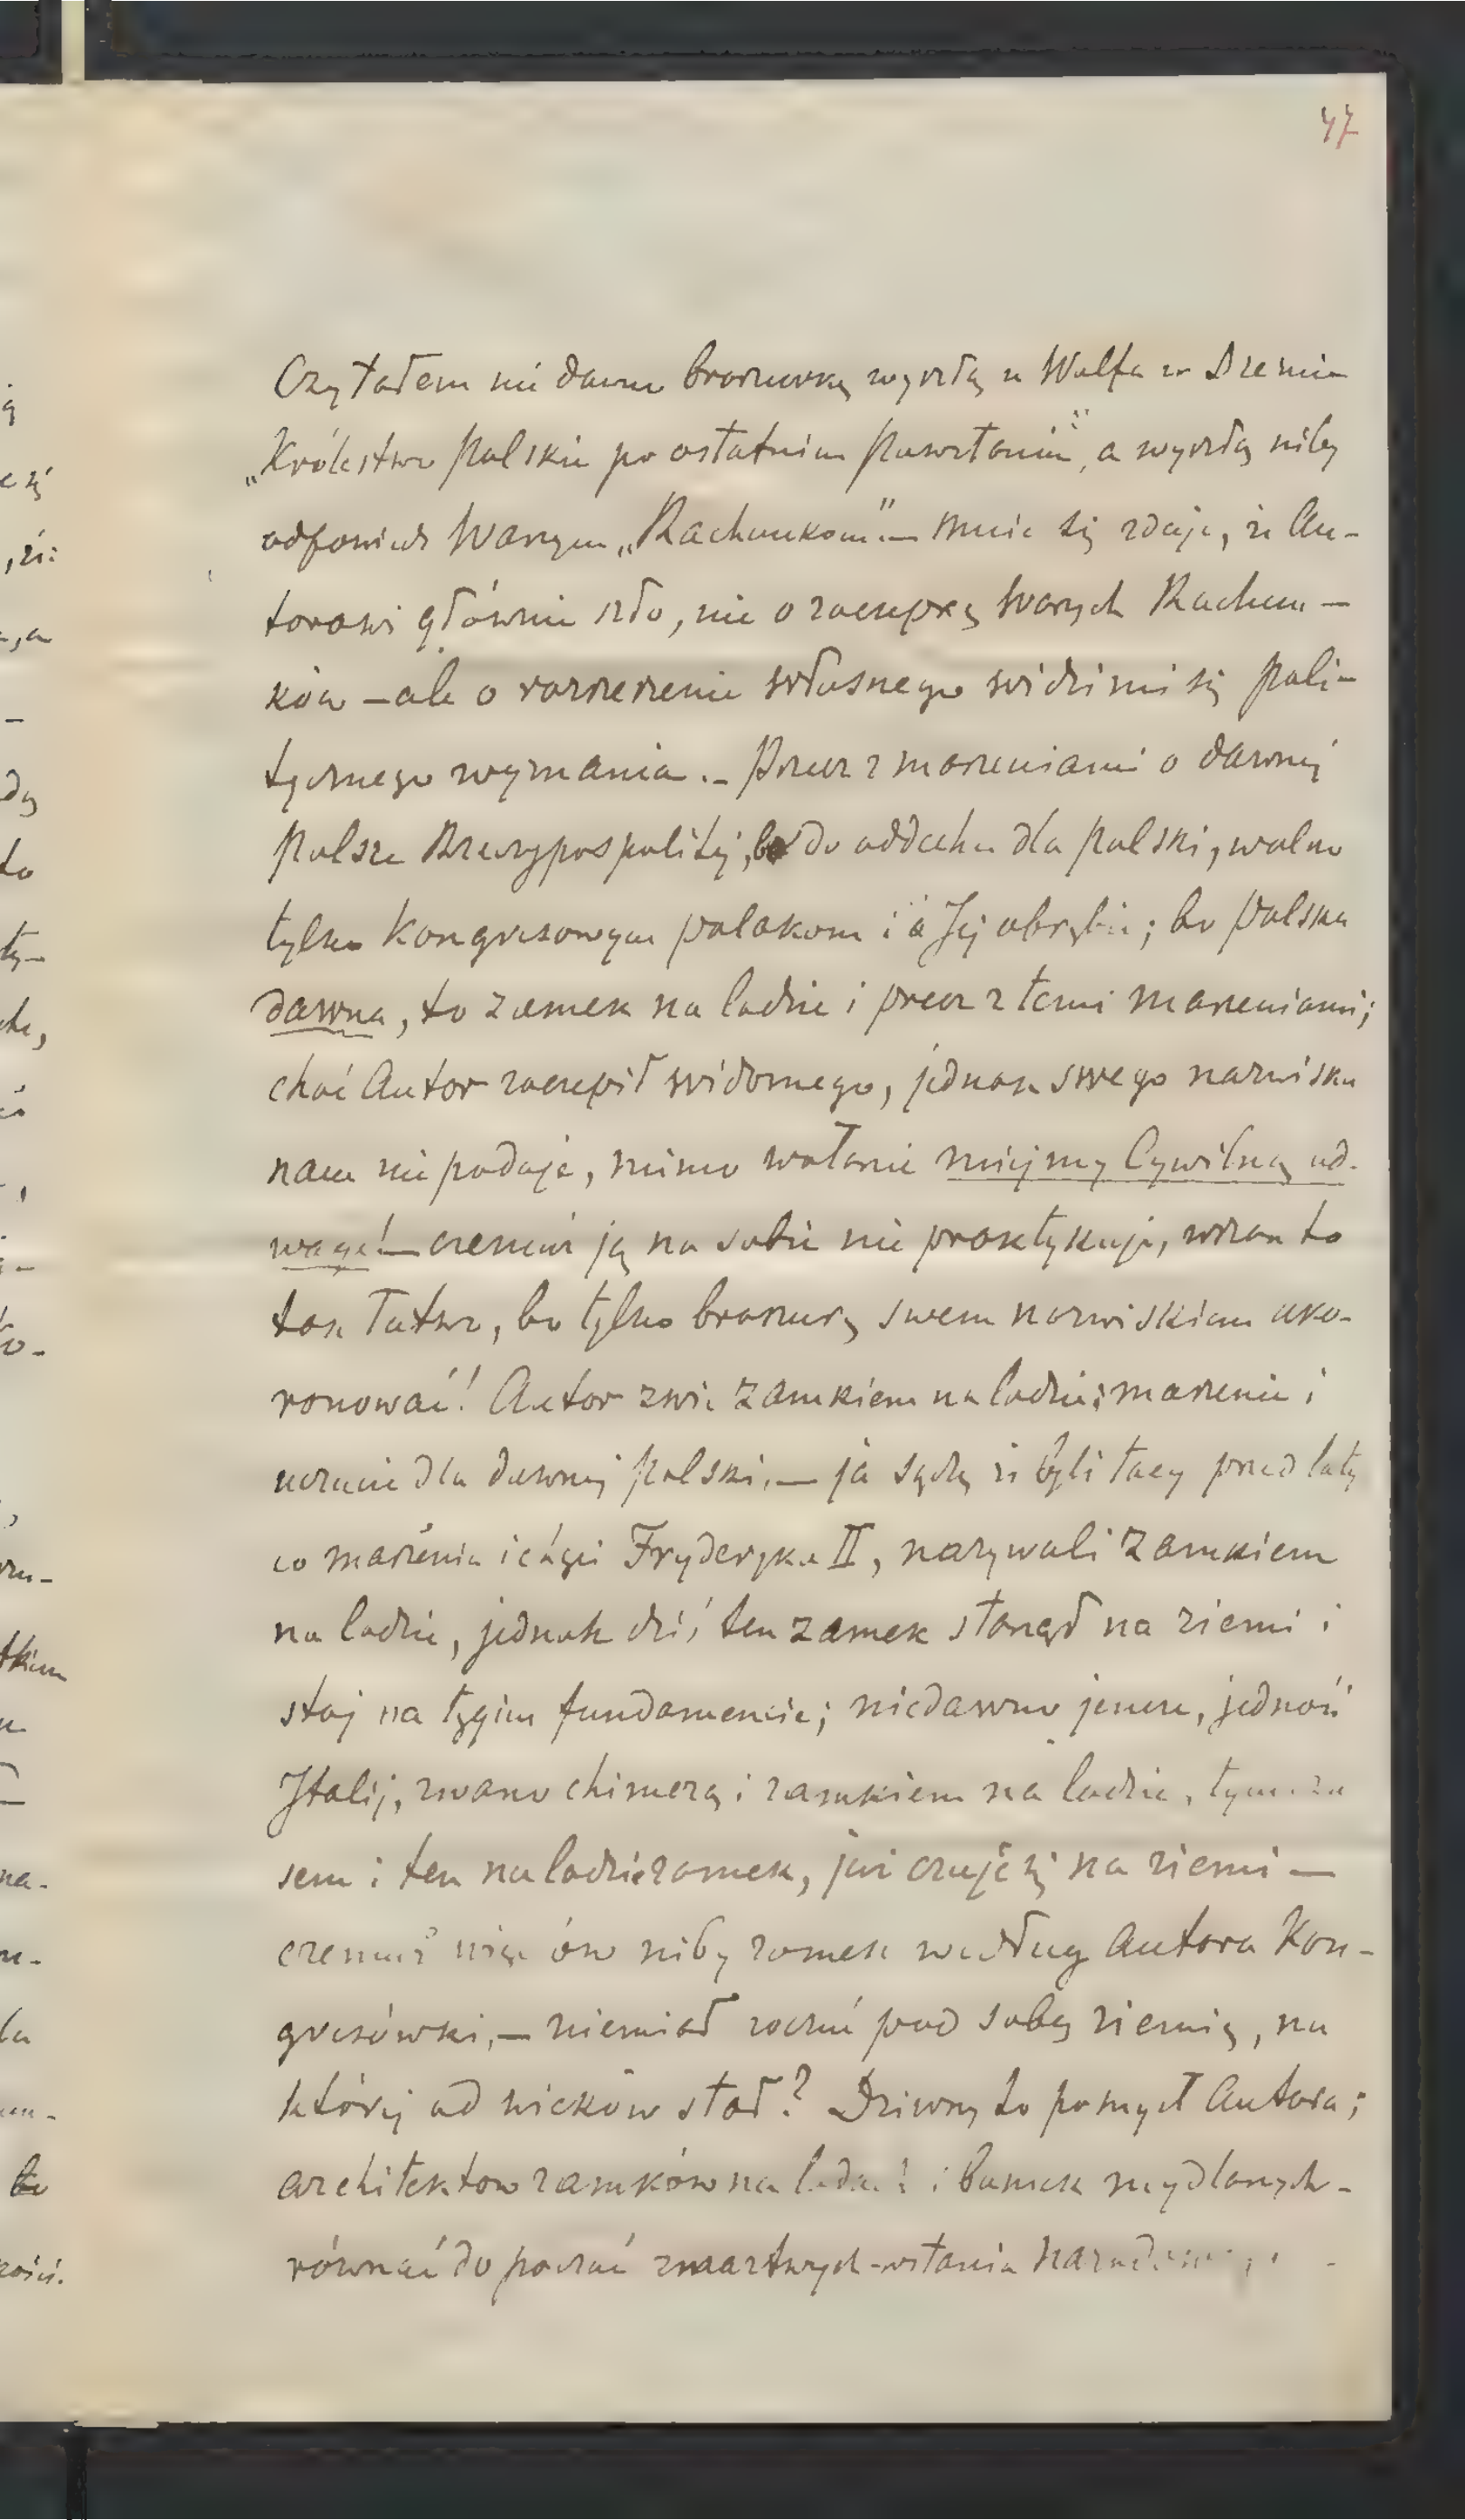 47
Czytałem nie dawno broszurkę wyszłą u Wolfa w Dreźnie
„Królestwo Polskie po ostatnim Powstaniu", a wyszłą niby
odpowiedź Waszym „Rachunkom" – mnie się zdaje, że Au-
torowi głównie szło, nie o zaczepkę Waszych Rachun-
ków – ale o rozszerzenie własnego widzimi się poli-
tycznego wyznania. – Precz z marzeniami o dawnej
Polsce Rzeczypospolitej, bo do oddechu dla Polski, wolno
tylko Kongresowym polakom i w Jej obrębie; bo Polska
dawna, to zamek na lodzie i precz z temi marzeniami;
choć Autor zaczepił widomego, jednak swego nazwiska
nam nie podaje, mimo wołanie miejmy Cywilną od-
wagę! – czemuż ją na sobie nie praktykuje, wszak to
tak łatwo, bo tylko broszurę swem nazwiskiem uko-
ronować! Autor zwie zamkiem na lodzie marzenie i
uczucie dla dawnej Polski, – ja sądzę iż byli tacy przed laty
co marzenia i dążę Fryderyka II, nazywali zamkiem
na lodzie, jednak dziś ten zamek stanął na ziemi i
stoj na tęgim fundamencie; niedawno jeszcze, jedność
Italij, zwano chimerą i zamkiem na lodzie, tymcza
sem i ten na lodzie zamek, już czuje się na ziemi –
czemuż więc ów niby zamek według Autora Kon-
gresówski, – niemiał poczuć pod sobą ziemię, na
której od wieków stał? Dziwny to pomysł Autora;
architektow zamków na lodzie i baniek mydlanych –
równać do poczuć zmartwych-wstania